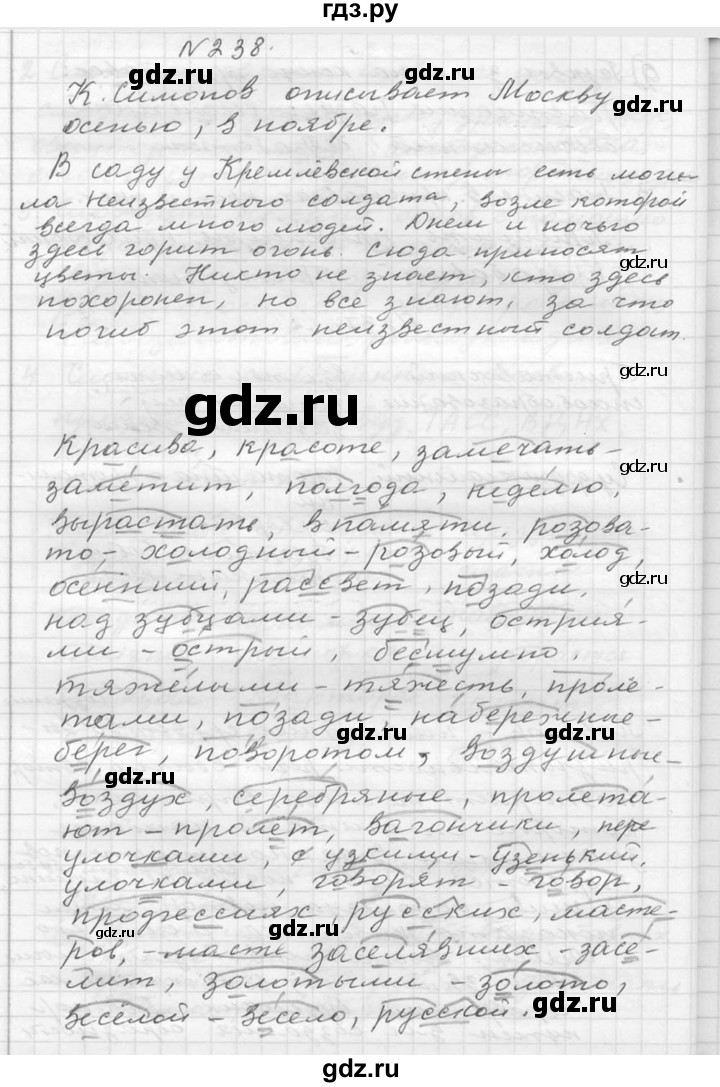 гдз.ру
№238.
gdz.ru
gdz.ru
К. Симонов описывает Москву
gdz.ru
осенью, в ноябре.
В саду у Кремлёвской стены есть моги-
gdz.ru
ла Неизвестного солдата, возле которой
всегда много людей. Днем и ночью
здесь горит огонь. Сюда приносят
gdz.ru
цветы. Никто не знает, кто здесь
похоронен, но все знают, за что
погиб этот неизвестный солдат.
gdz.ru
gdz.ru
Красива, красоте, замечать-
gdz.ru
заметит, полгода, неделю,
gdz.ru
вырастать, в памяти, розова-
то-холодный-розовый, холод,
осенний, рассвет, позади,
gdz.ru
над зубцами - зубец, острия-
ми - острый, бесшумно,
gdz.ru
тяжёлыми - тяжесть, проле-
тами, позади, набережные-
gdz.ru
берег, поворотом, воздушные-
gdz.ru
воздух, серебряные, пролета-
ют - пролёт, вагончики, пере
gdz.ru
улочками, с узкими-узенький,
улочками, говорят - говор,
gdz.ru
профессиях, русских, масте-
gdz.ru
ров, - масте заселявших - засе-
лит, золотыми - золото,
gdz.ru
весёлой - весело, русской.
gdz.ru
gdz.ru